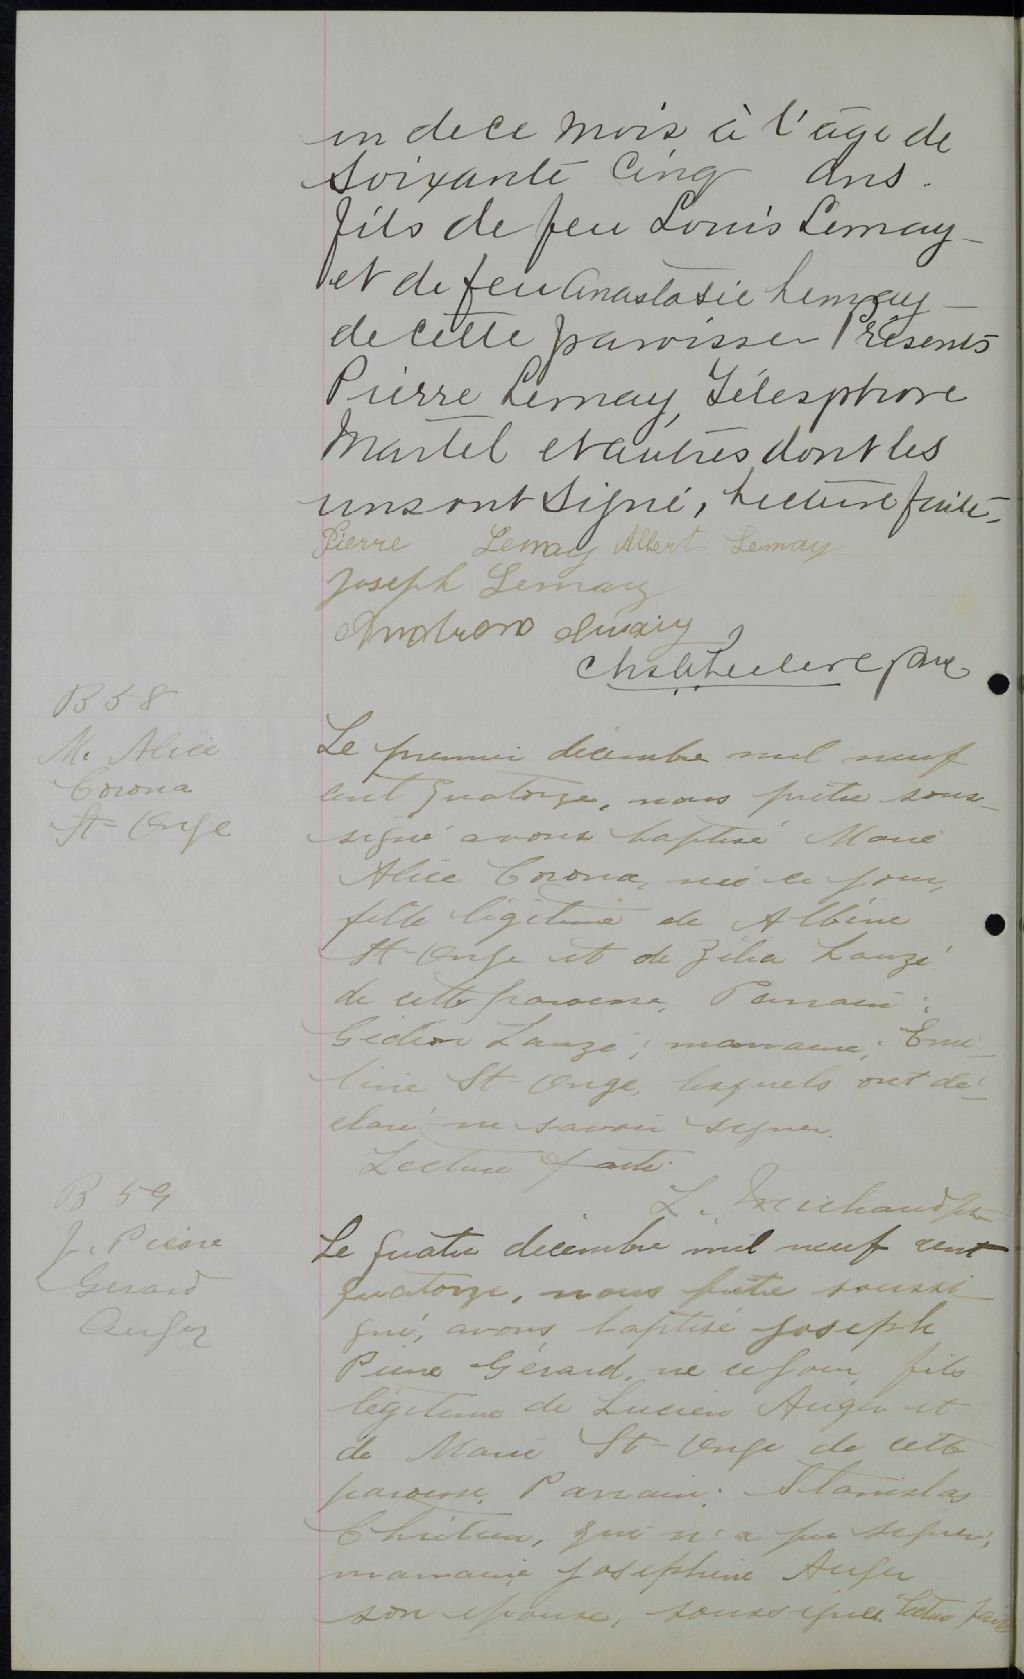 un de ce mois à l'âge de
Soixante Cinq ans.
fils de feu Louis Lemay
et de feu Anastasie Lemay
de cette paroisse Présents
Pierre Lemay, Télesphore
Martel et autres dont les
uns ont Signé, Lecture faite.
Pierre Lemay Albert Lemay
Joseph Lemay
Lemay
ptre
B 58
M. Alice
Corona
St-Onge
Le premier décembre mil neuf
cent quatorze, nous prêtre sous-
signé avons baptisé Marie
Alice Corona, née ce jour,
fille légitime de Albénie
St-Onge et de Zélia Lauzé
de cette paroisse. Parrain :
Gédéon Lauzé ; marraine : Emé-
line St-Onge, lesquels ont dé-
claré ne savoir signer.
Lecture faite.
L. Michaud ptre
B 59
J. Pierre
Gérard
Auger
Le quatre décembre mil neuf cent
quatorze, nous prêtre soussi-
gné, avons baptisé Joseph
Pierre Gérard, né ce jour, fils
légitime de Lucien Auger et
de Marie St-Onge de cette
paroisse. Parrain : Stanislas
Chrétien, qui n'a pu signer ;
marraine Josephine Auger
son épouse, soussignée. Lecture faite